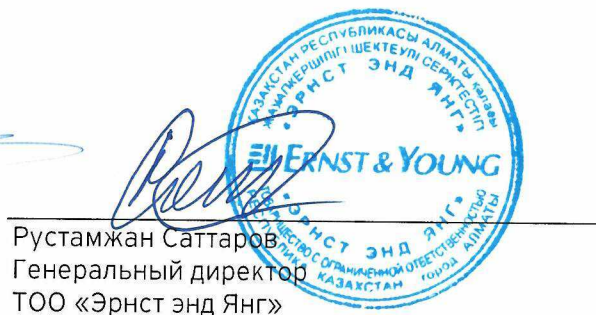 ҚАЗАҚСТАН РЕСПУБЛИКАСЫ АЛМАТЫ қаласы
ЖАУАПКЕРШІЛІГІ ШЕКТЕУЛІ СЕРІКТЕСТІГІ
«ЭРНСТ ЭНД ЯНГ»
ERNST & YOUNG
«ЭРНСТ ЭНД ЯНГ»
ТОВАРИЩЕСТВО С ОГРАНИЧЕННОЙ ОТВЕТСТВЕННОСТЬЮ
РЕСПУБЛИКА КАЗАХСТАН город АЛМАТЫ
Рустамжан Саттаров
Генеральный директор
ТОО «Эрнст энд Янг»